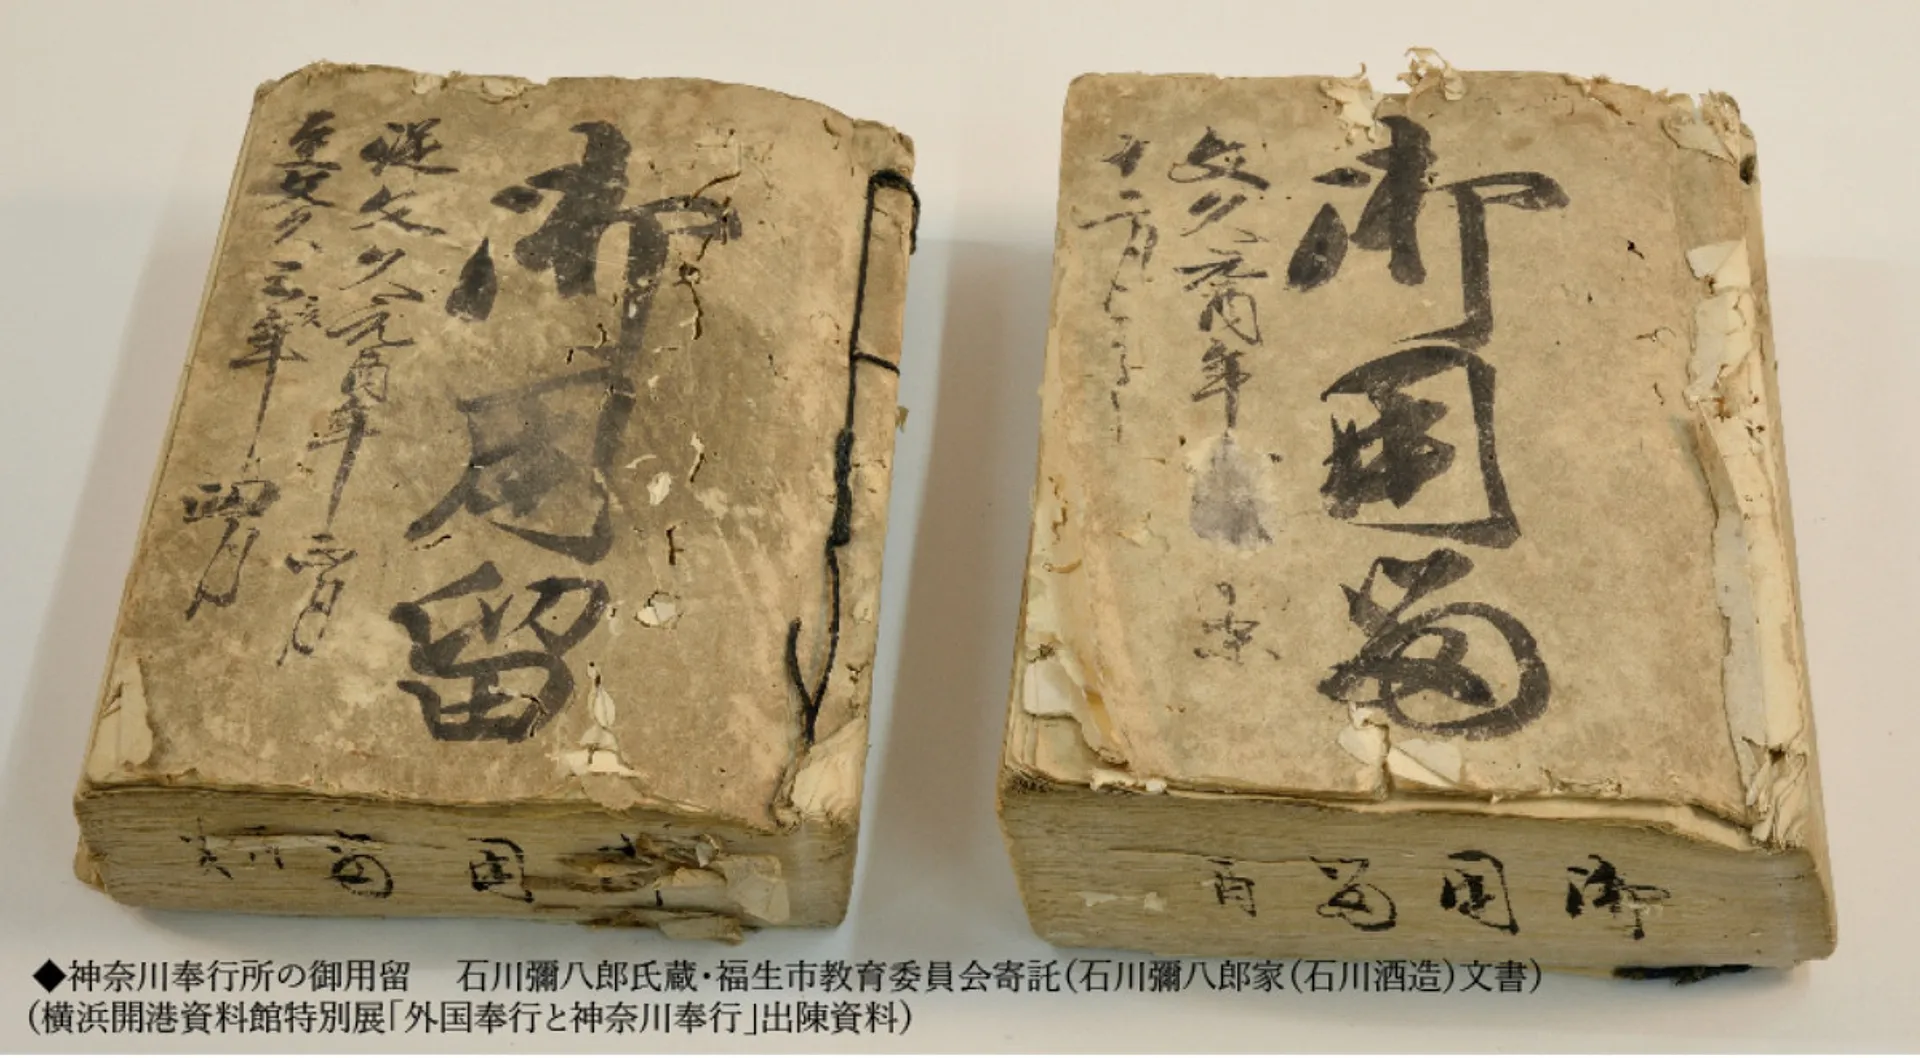 御用留
従文久元酉年正月
至文久三亥年四月
御用留
文久元酉年
十二月
用留
御用留 酉
◆神奈川奉行所の御用留　石川彌八郎氏蔵・福生市教育委員会寄託(石川彌八郎家(石川酒造)文書)
(横浜開港資料館特別展「外国奉行と神奈川奉行」出陳資料)